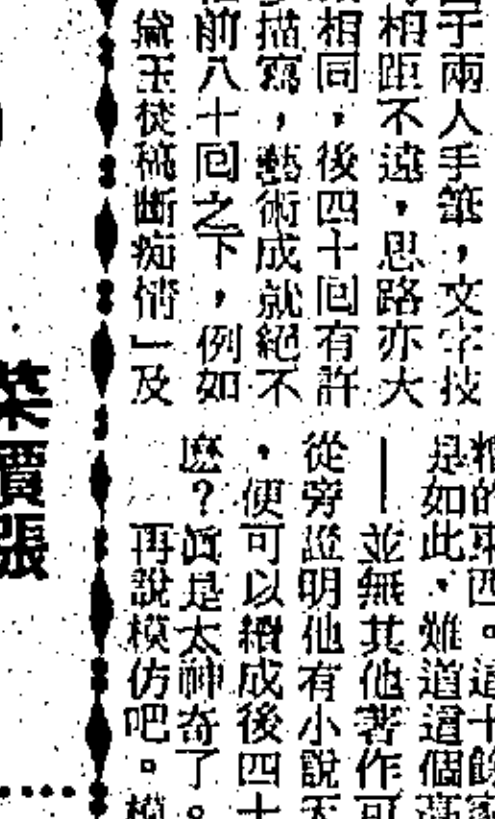 于兩人手筆，文字技
相距不遠，思路亦大
相同，後四十回有許
描寫，藝術成就絕不
前八十回之下，例如
黛玉焚稿斷痴情」及
的東西。這十餘
是如此，難道這個高
——並無其他著作可
從旁證明他有小說天
，便可以續成後四十
麽？眞是太神奇了。
再說模仿吧。模
菜價漲